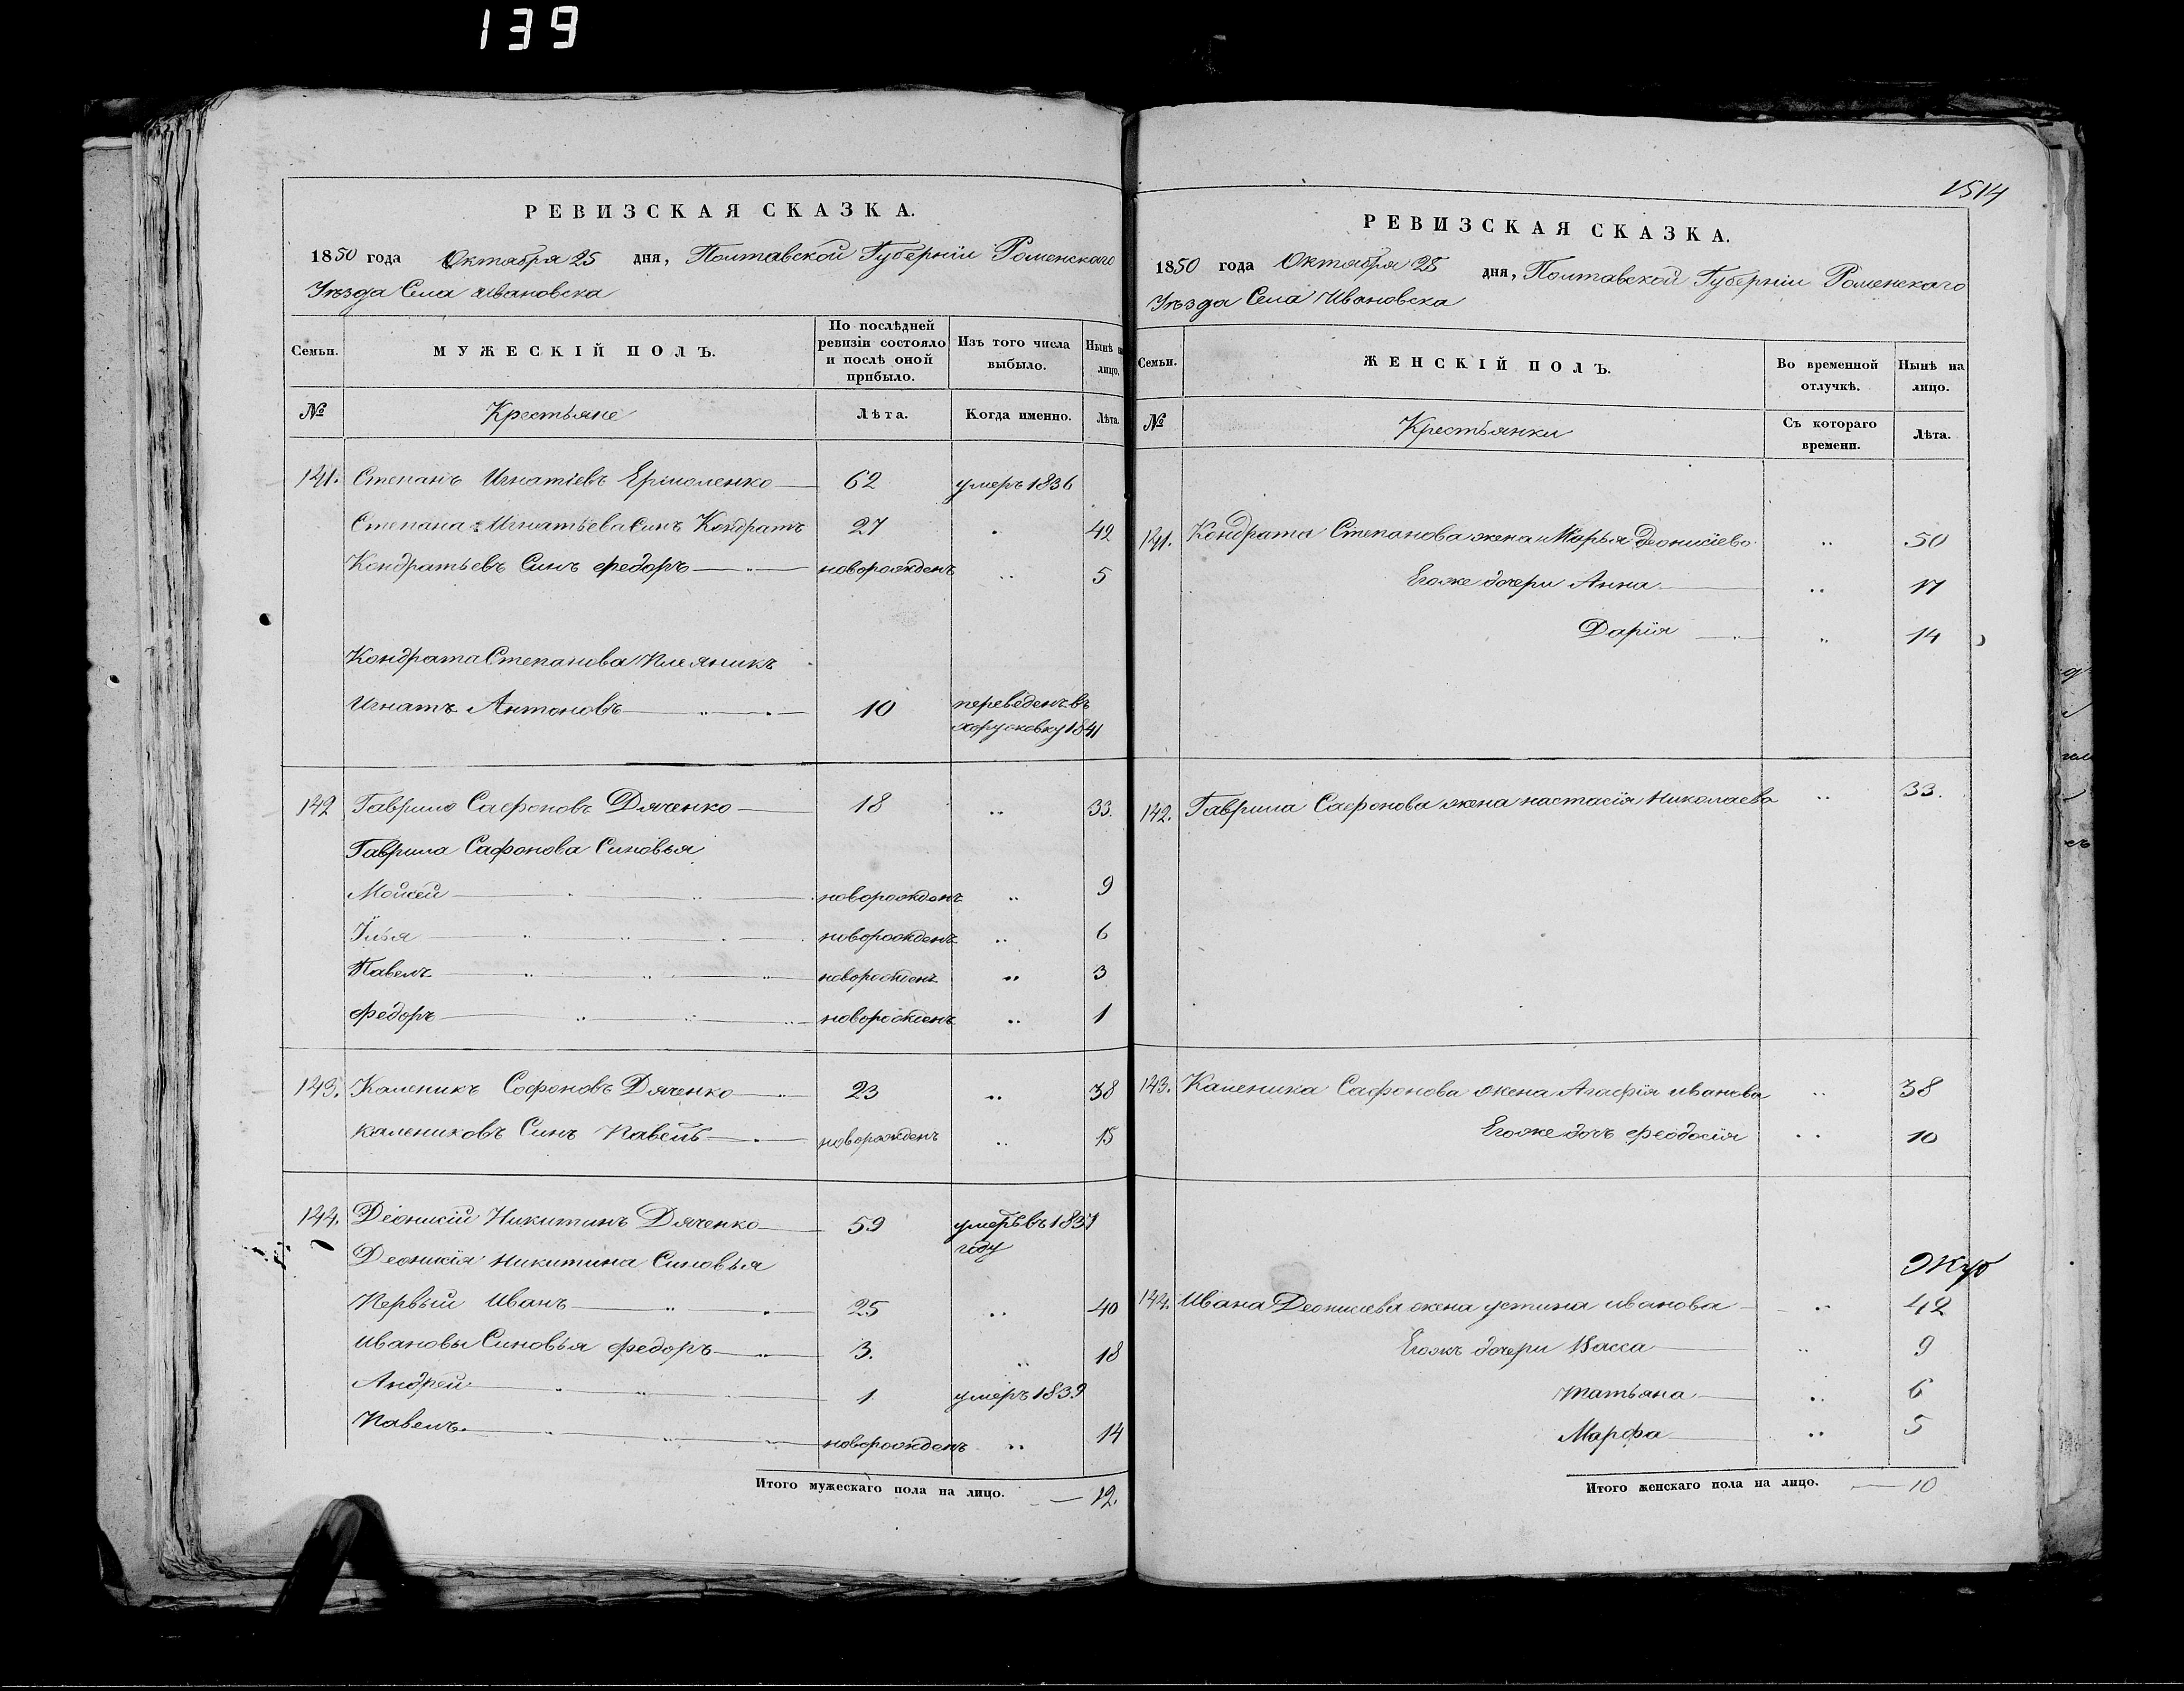 139
РЕВИЗСКАЯ СКАЗКА.
1850 года Октября 25 дня, Полтавской Губерніи Роменскаго
Уѣзда Села Ивановска
Семьи.
МУЖЕСКІЙ ПОЛЪ.
По послѣдней ревизіи состояло и послѣ оной прибыло.
Изъ того числа выбыло.
Нынѣ на лицо.
№ Крестьяне Лѣта. Когда именно. Лѣта.
141. Степанъ Игнатіевъ Ермоленко 62 умеръ 1836
Степана Игнатьева Синъ Кондратъ 27 42
Кондратьевъ Синъ Федоръ новорожденъ 5
Кондрата Степанова Племяникъ
Игнатъ Антоновъ 10 переведенъ въ
1841
142 Гаврило Сафоновъ Дяченко 18 33.
Гаврила Сафонова Синовья
Мойсей новорожденъ 9
Илья новорожденъ 6
Павелъ новорожденъ 3
Федоръ новорожденъ 1
143. Каленикъ Софоновъ Дяченко 23 38
Калениковъ Синъ Павелъ новорожденъ 15
144. Діонисій Никитинъ Дяченко 59 умеръ въ 1837
году
Деонисія Никитина Синовья
Первый Иванъ 25 40
Ивановы Синовья Федоръ 3. 18
Андрей 1 умеръ 1839
Павелъ новорожденъ 14
Итого мужескаго пола на лицо. 12.
1514
РЕВИЗСКАЯ СКАЗКА.
1850 года Октября 25 дня, Полтавской Губерніи Роменскаго
Уѣзда Села Ивановска
Семьи.
ЖЕНСКІЙ ПОЛЪ.
Во временной отлучкѣ.
Нынѣ на лицо.
№ Крестьянки Съ котораго времени. Лѣта.
141. Кондрата Степанова жена Марья Деонисіева 50
Егоже дочери Анна 17
Дарія 14
142. Гаврила Сафонова жена Настасія Николаева 33.
143. Каленика Сафонова жена Агафія Иванова 38
Егоже дочъ Феодосія 10
144. Ивана Деонисіева жена Устина Иванова 42
Егожъ дочери Васса 9
Татьяна 6
Марфа 5
Итого женскаго пола на лицо. 10